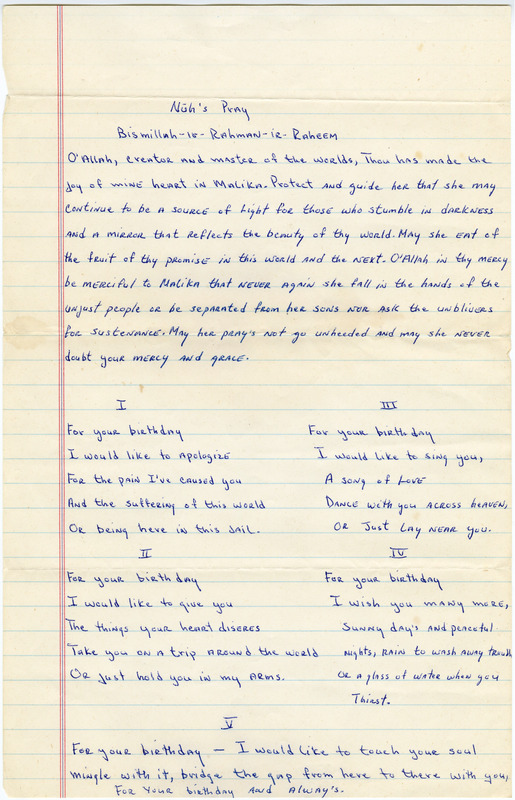 Nūh's Pray
Bismillah-ir-Rahman-ir-Raheem
O'Allah, creator and master of the worlds, Thou has made the
joy of mine heart in Malika. Protect and guide her that she may
continue to be a source of Light for those who stumble in darkness
and a mirror that reflects the beauty of thy world. May she eat of
the fruit of thy promise in this world and the next. O'Allah in thy mercy
be merciful to Malika that never again she fall in the hands of the
unjust people or be separated from her sons nor ask the unblivers
for sustenance. May her pray's not go unheeded and may she never
doubt your mercy and grace.
I
For your birthday
I would like to apologize
For the pain I've caused you
And the suffering of this world
Or being here in this jail.
II
For your birthday
I would like to give you
The things your heart diseres
Take you on a trip around the world
Or just hold you in my arms.
III
For your birthday
I would like to sing you,
A song of love
Dance with you across heaven,
Or Just Lay near you.
IV
For your birthday
I wish you many more,
Sunny day's and peaceful
nights, rain to wash away trouble
or a glass of water when you
Thirst.
V
For your birthday — I would like to touch your soul
mingle with it, bridge the gap from here to there with you,
For Your birthday and Alway's.